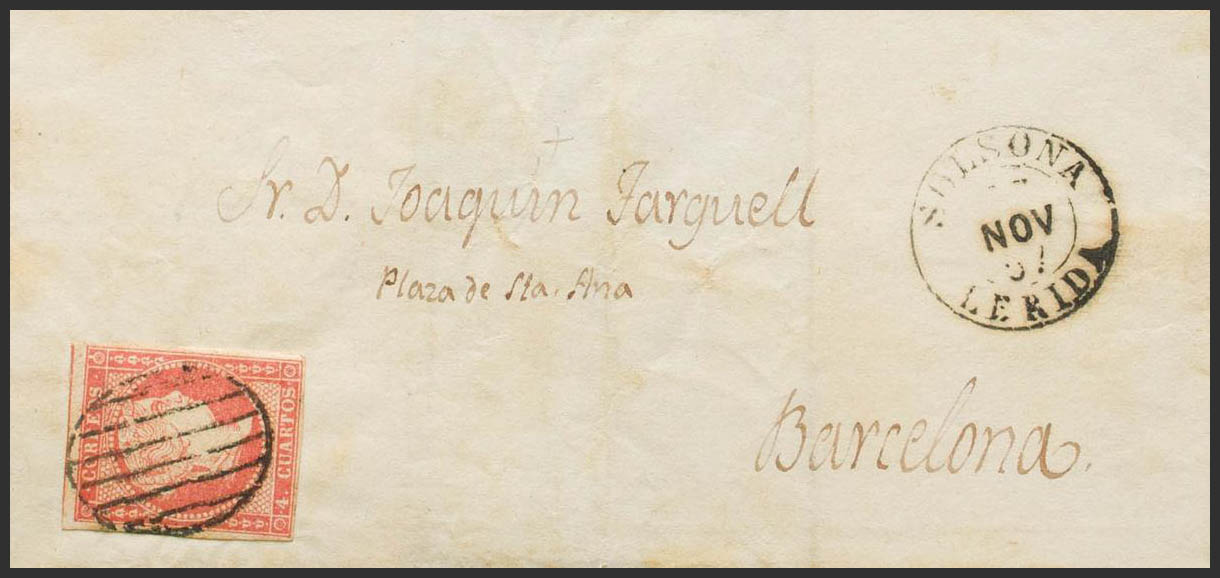 SOLSONA
NOV
57
LERIDA
Sr. D. Joaquin Farguell
Plaza de Sta. Ana
CORREOS
4. CUARTOS
Barcelona.